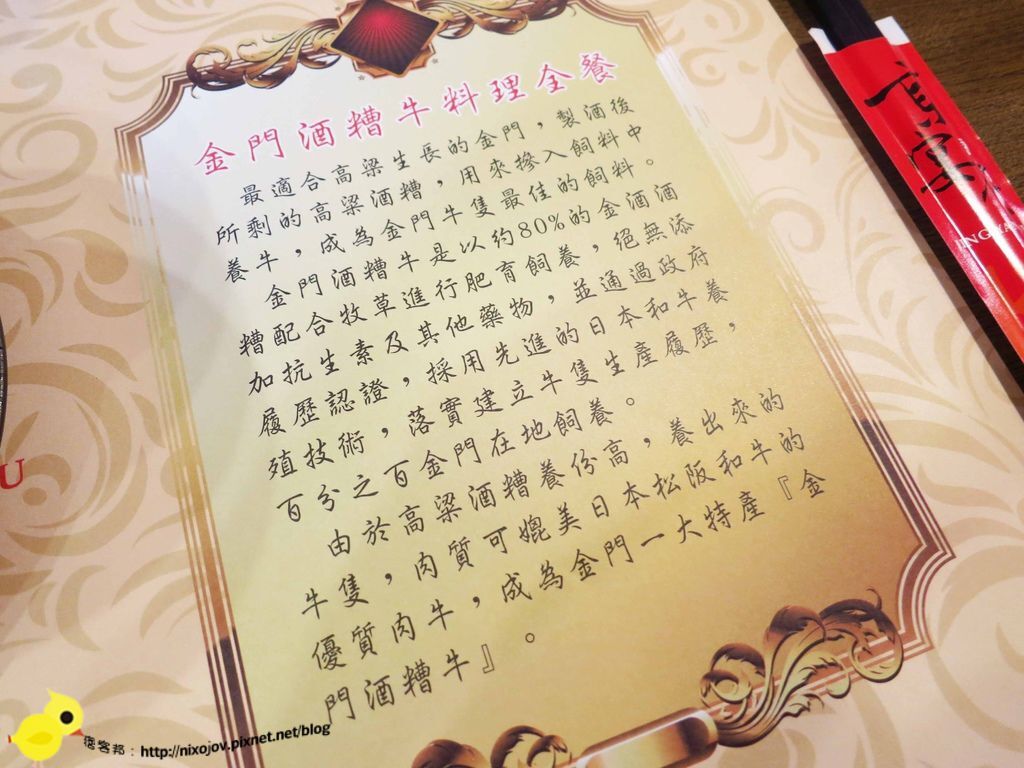 金門酒糟牛料理全餐
最適合高粱生長的金門，製酒後
所剩的高粱酒糟，用來摻入飼料中
養牛，成為金門牛隻最佳的飼料。
金門酒糟牛是以約80%的金酒酒
糟配合牧草進行肥育飼養，絕無添
加抗生素及其他藥物，並通過政府
履歷認證，採用先進的日本和牛養
殖技術，落實建立牛隻生產履歷，
百分之百金門在地飼養。
由於高粱酒糟養份高，養出來的
牛隻，肉質可媲美日本松阪和牛的
優質肉牛，成為金門一大特產『金
門酒糟牛』。
U
痞客邦：http://nixojov.pixnet.net/blog